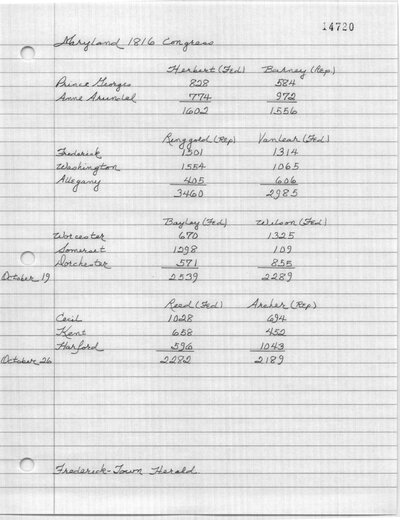 14720
Maryland 1816 Congress
Herbert (Fed) Barney (Rep)
Prince Georges 828 584
Anne Arundel 774 972
1602 1556
Ringgold (Rep) Vanlear (Fed)
Frederick 1501 1314
Washington 1554 1065
Allegany 405 606
3460 2985
Bayley (Fed) Wilson (Fed)
Worcester 670 1325
Somerset 1298 109
Dorchester 571 855
October 19 2539 2289
Reed (Fed) Archer (Rep)
Cecil 1028 694
Kent 658 452
Harford 596 1043
October 26 2282 2189
Frederick-Town Herald